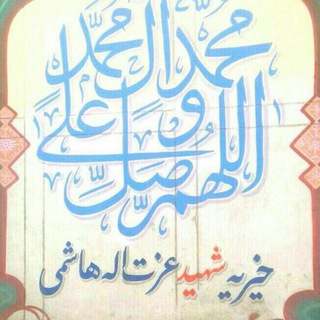 اللهم صل علی محمد و آل محمد
خیریه شهید عزت اله هاشمی